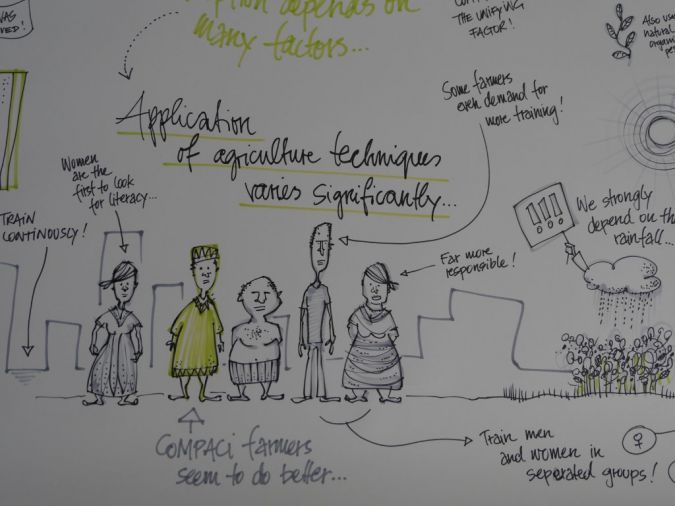 depends on
many factors...
THE UNIFYING
FACTOR!
Also use
natural
Some farmers
even demand for
more training!
Application
of agriculture techniques
varies significantly...
Women
are the
first to look
for literacy...
TRAIN
CONTINOUSLY!
We strongly
depend on the
rainfall...
!!!
Far more
responsible!
COMPACI farmers
seem to do better...
Train men
and women in
seperated groups!